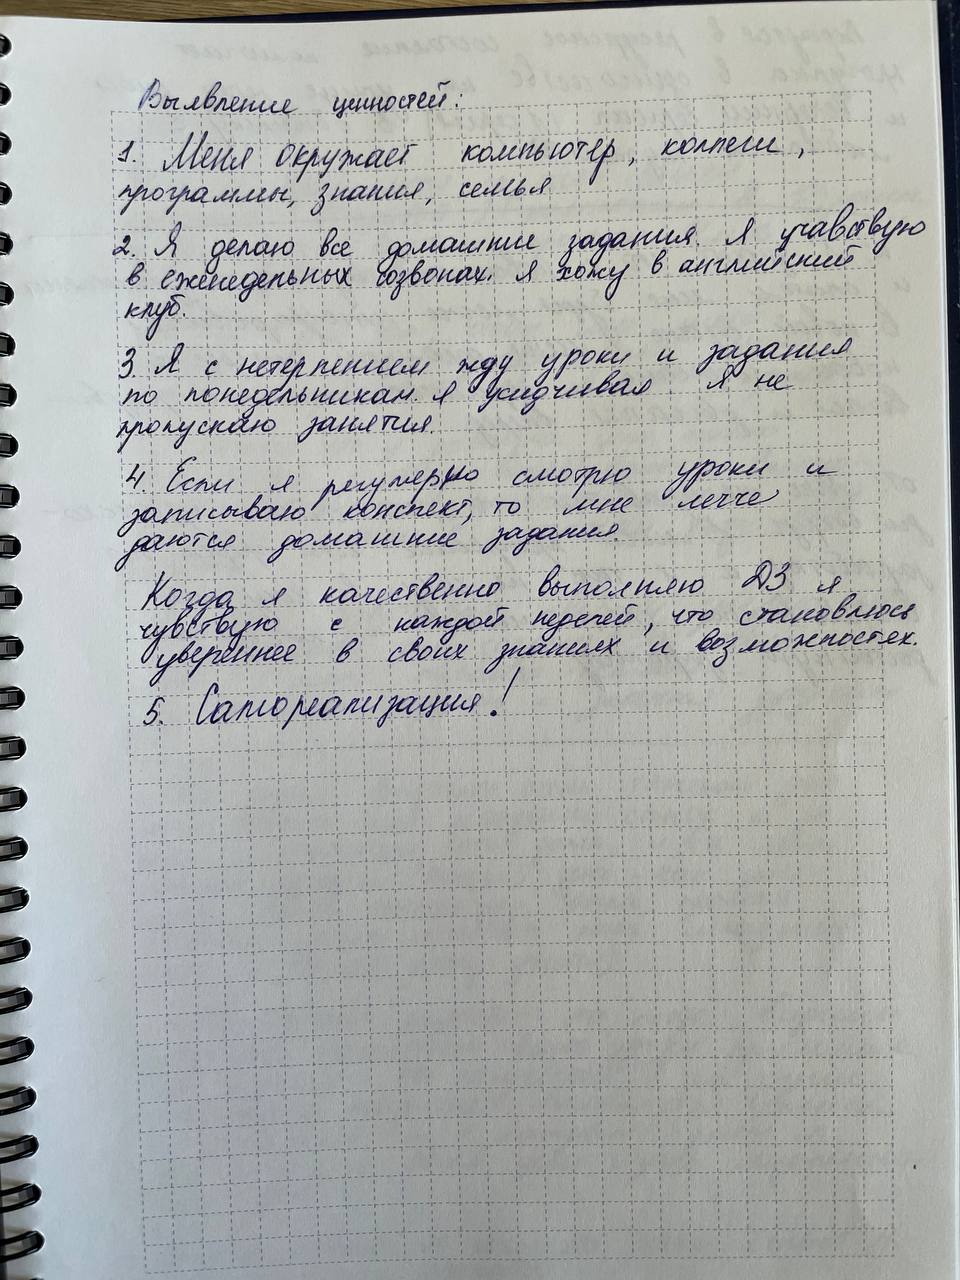 Выявление ценностей:
1. Меня окружает компьютер, коллеги,
программы, знания, семья
2. Я делаю все домашние задания. Я учавствую
в еженедельных созвонах. Я хожу в английский
клуб.
3. Я с нетерпением жду уроки и задания
по понедельникам. Я усидчивая Я не
пропускаю занятия.
4. Если я регулярно смотрю уроки и
записываю конспект, то мне легче
даются домашние задания.
Когда я качественно выполняю ДЗ я
чувствую с каждой неделей, что становлюсь
увереннее в своих знаниях и возможностях.
5. Самореализация!